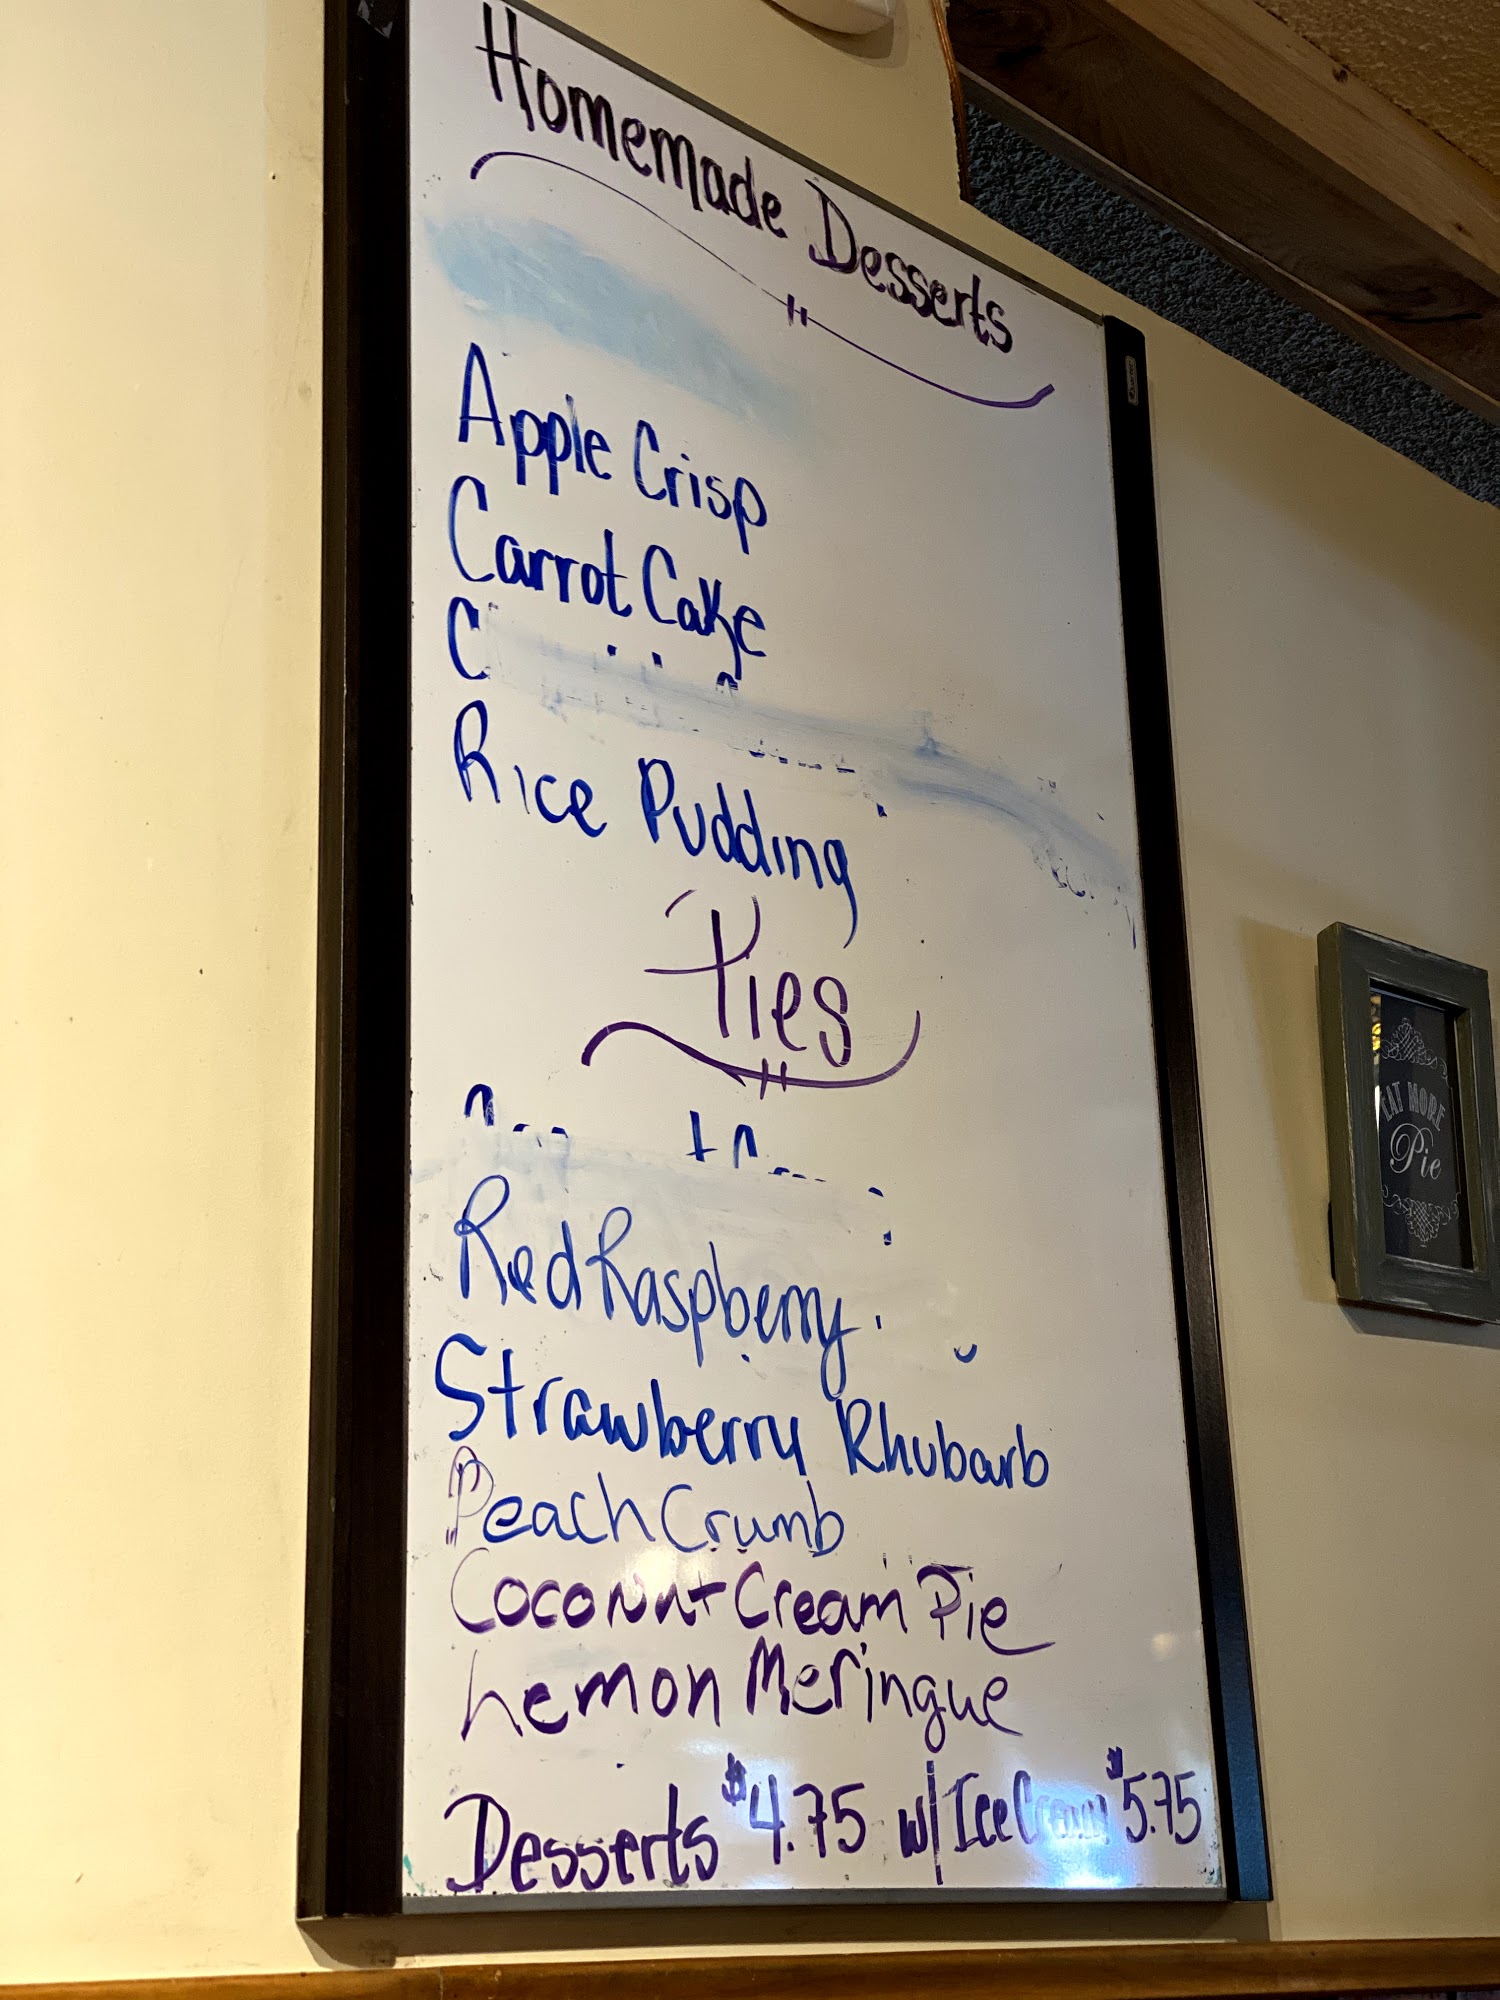 Homemade Desserts
Apple Crisp
Carrot Cake
C
Rice Pudding
Pies
Red Raspberry
Strawberry Rhubarb
Peach Crumb
Coconut Cream Pie
Lemon Meringue
Desserts $4.75 w/ Ice Cream $5.75
EAT MORE
Pie